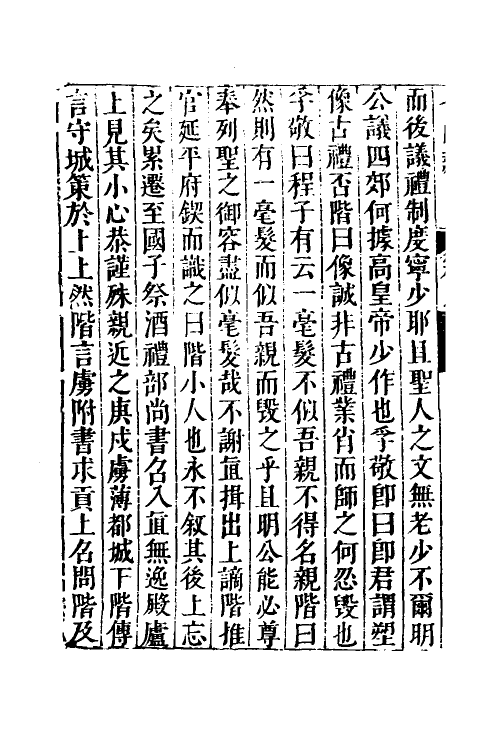 而後議禮制度寧少耶且聖人之文無老少不爾明
公議四郊何據高皇帝少作也孚敬卽曰卽君謂塑
像古禮否階曰像誠非古禮業肖而師之何忍毀也
孚敬曰程子有云一毫髮不似吾親不得名親階曰
然則有一毫髮而似吾親而毀之乎且明公能必尊
奉列聖之御容盡似毫髮哉不謝直揖出上謫階推
官延平府鍥而識之曰階小人也永不叙其後上忘
之矣累遷至國子祭酒禮部尚書召入直無逸殿廬
上見其小心恭謹殊親近之庚戌虜薄都城下階傳
言守城策於上上然階言虜附書求貢上名問階及